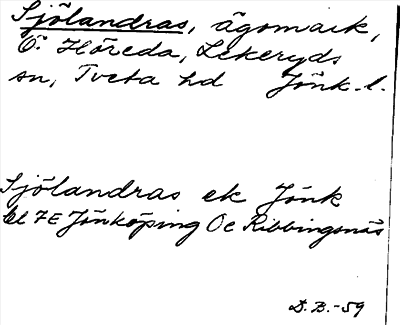 Sjölandras, ägomark,
Ö. Höreda, Lekeryds
sn, Tveta hd Jönk. l.
Sjölandras ek Jönk
bl 7E Jönköping Oc Ribbingsnäs
D. B. -59